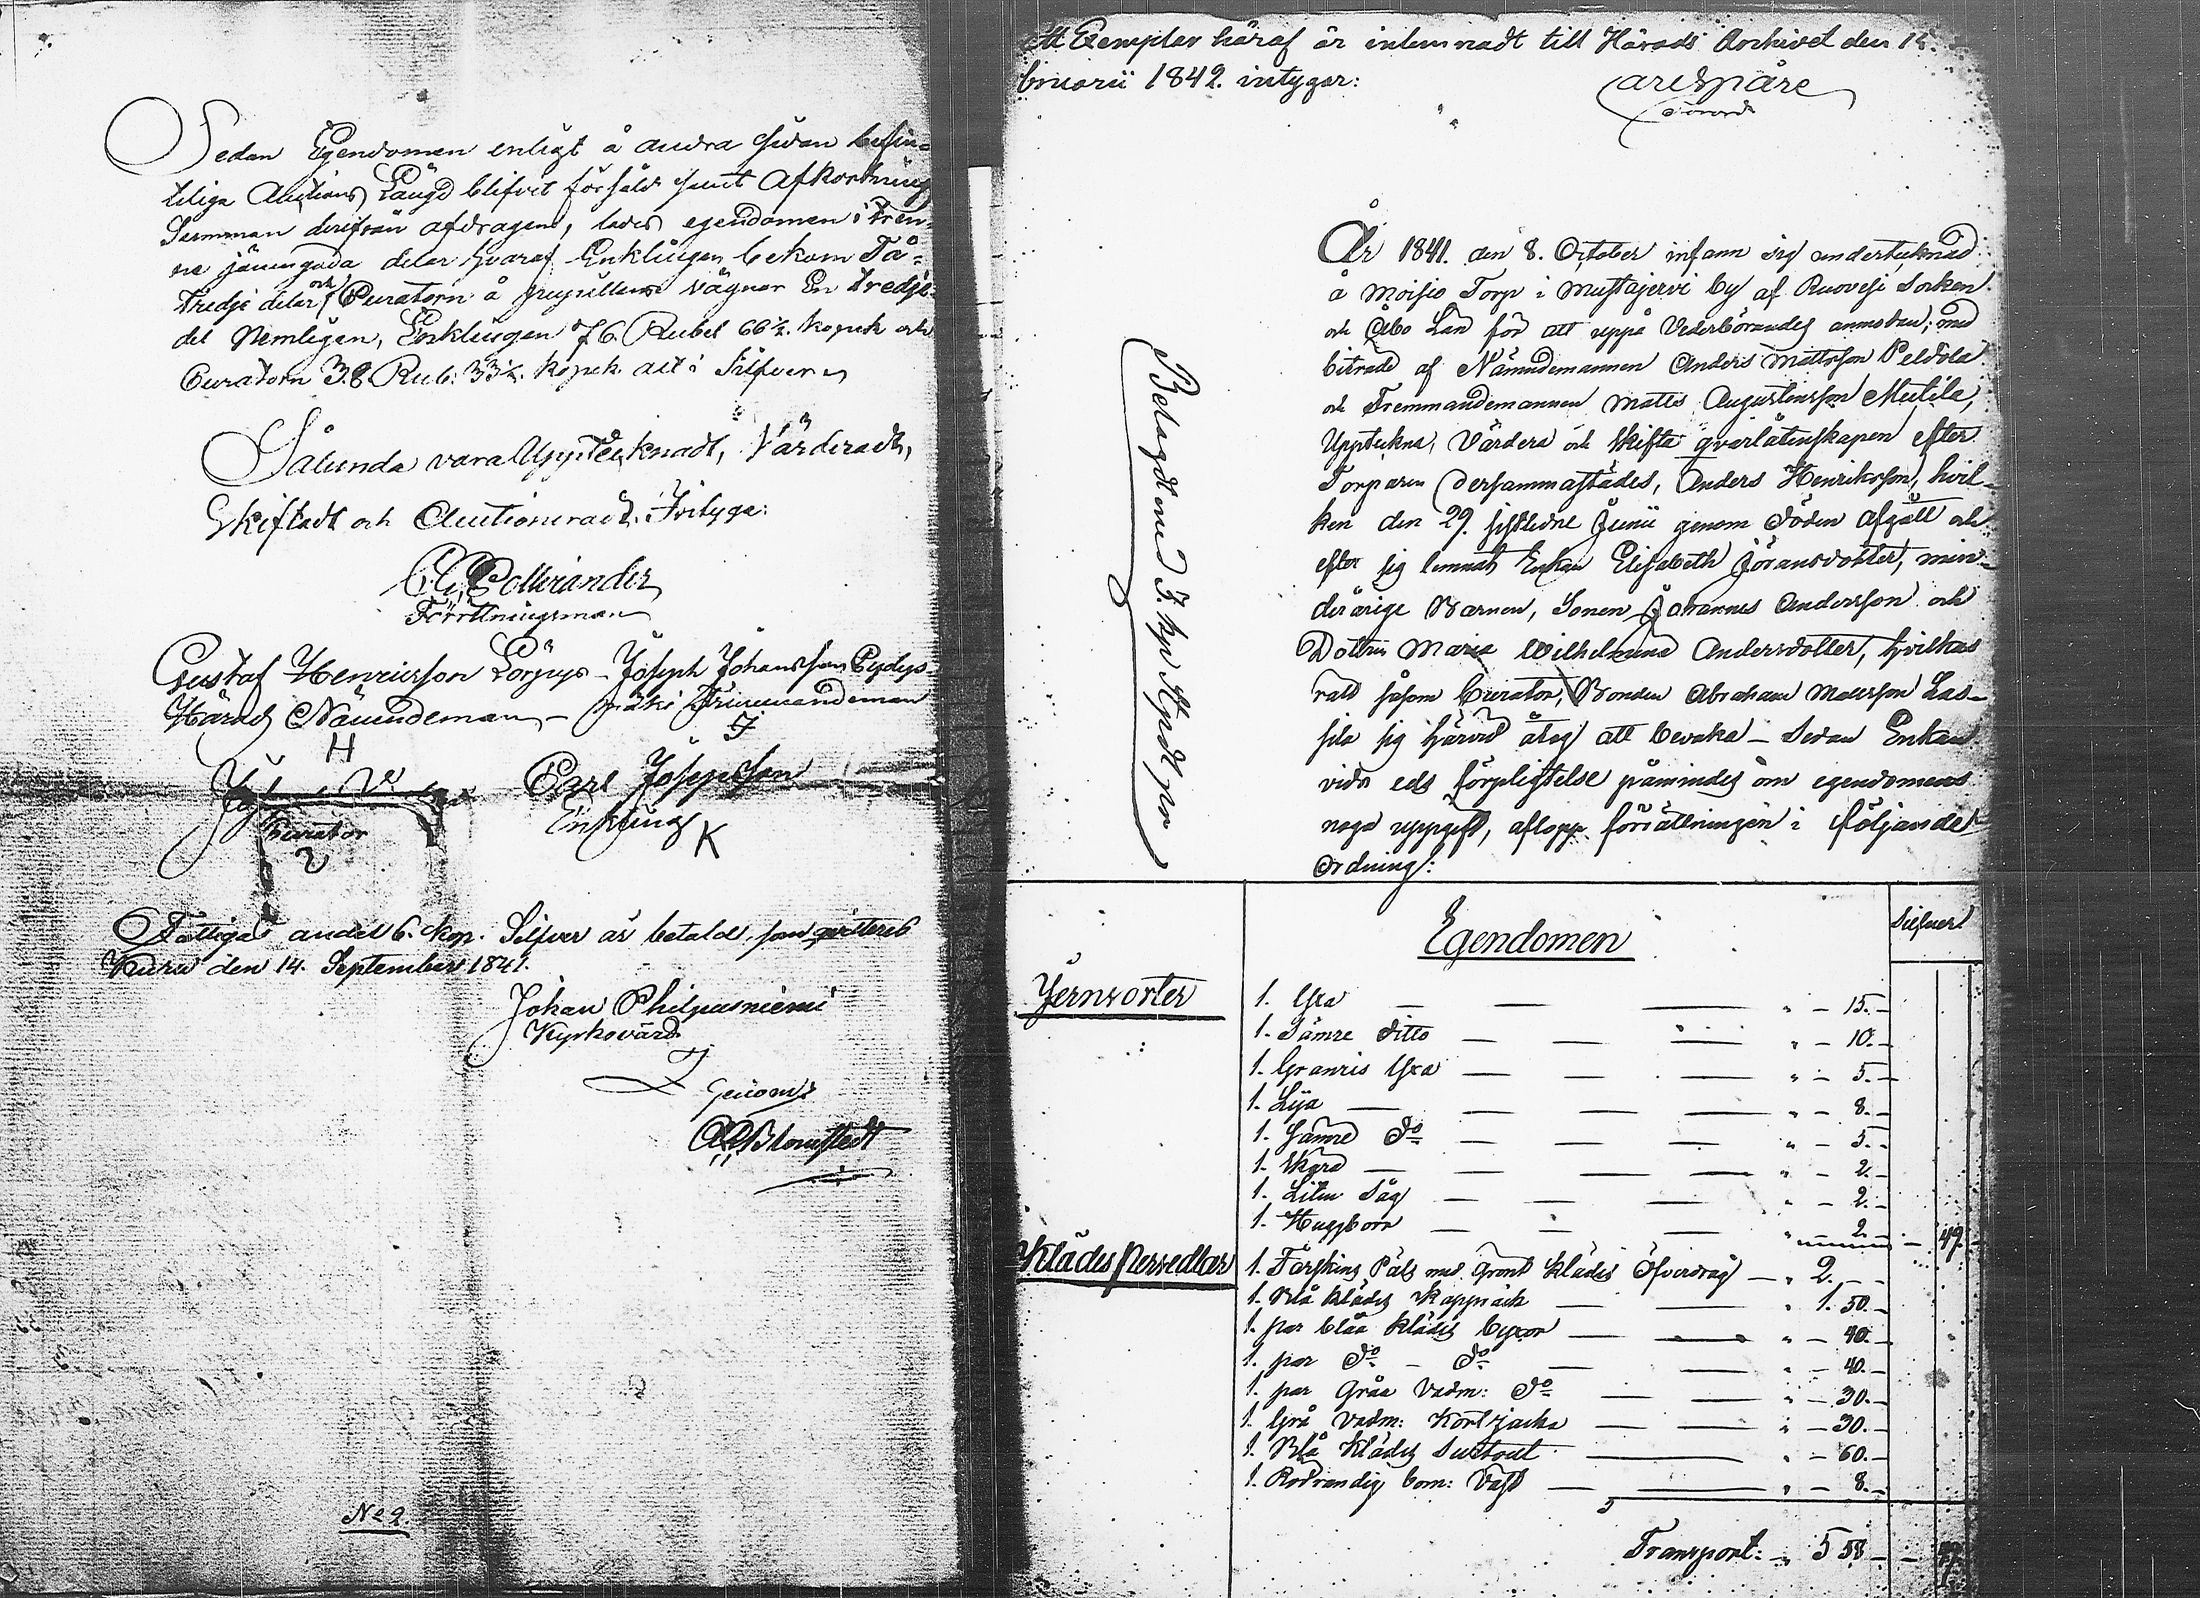 Sedan Egendomen enligt å andra sidan befin-
tliga Auctions Längd blifvit försåld samt Afkortnings
Summan derifrån afdragen, lades egendomen i tren-
ne jämngoda delar hvaraf Enklingen bekom Två-
tredje delar och Curatorn å pupillens vägnar En tredje
del Nemligen, Enklingen 76 Rubel 66 2/3 kopek och
Curatorn 38 Rub: 33 1/3 kopek alt i Silfver
Sålunda vara Upptecknadt, Värderadt,
Skiftadt och Auctioneradt; Intyga:
Förrttningsman
Gustaf Henricsson Lörpys - Joseph Johansson Pydys-
Härads Nämndeman - mäki Fremmandeman
H
Carl Josepsson
Enkling
Kurator
K
Fattigas andel 6. kop. Silfver är betald, som qvitteras
Kuru den 14. September 1841.
Johan Philpusniemi
Kyrkovärd
Genom
Blomstedt
No 2.
tt Exemplar häraf är inlemnadt till Härads Archivet den 15.
bruarii 1842. intygar:
Carl Spåre
Belagdt med 5. kop Stpdt ppr
År 1841. den 8. October infann sig undertecknad
å Moisio Torp i Mustajervi by af Ruovesi Socken
och Åbo Län för att uppå Vederbörandes anmodan, med
biträde af Nämndemannen Anders Mattsson Peldola
och Fremmandemannen Matts Augustinsson Mutila,
Uppteckna, Värdera och Skifta qvarlåtenskapen efter
Torparen dersammastädes, Anders Henriksson, hvil-
ken den 29. sistledne Junii genom Döden afgått och
efter sig lemnat Enkan Elisabeth Jöransdotter, min-
derårige Barnen, Sonen Johannes Andersson och
Dottren Maria Wilhelmina Andersdotter, hvilkas
rätt såsom Curator, Bonden Abraham Mattsson Las-
sila sig härvid åtog att bevaka - Sedan Enkan
vid eds förpligtelse påmindes om egendomens
noga uppgift, aflopp förrättningen i följande
Ordning:
Egendomen
Silfver
Jernsorter
1. Yxa - 15.
1. Sämre ditto - 10.
1. Granris Yxa - 5.
1. Lija - 8.
1. Sämre Do - 5.
1. Skära - 2.
1. Liten Såg - 2.
1. Huggborr - 2. - 49.
Klädes Persedlar
1. Fårskins Päls med Grönt Klädes Öfverdrag - 2. -
1. Blå Klädes Kapprock - 1. 50.
1. par blåa klädes byxor - 40.
1. par Do - Do - 40.
1. par Gråa Vadm: Do - 30.
1. Grå Vadm: Kort jacka - 30.
1. Blå Klädes Surtout - 60.
1. Rödrandig bom: Väst - 8.
Transport: 5 58